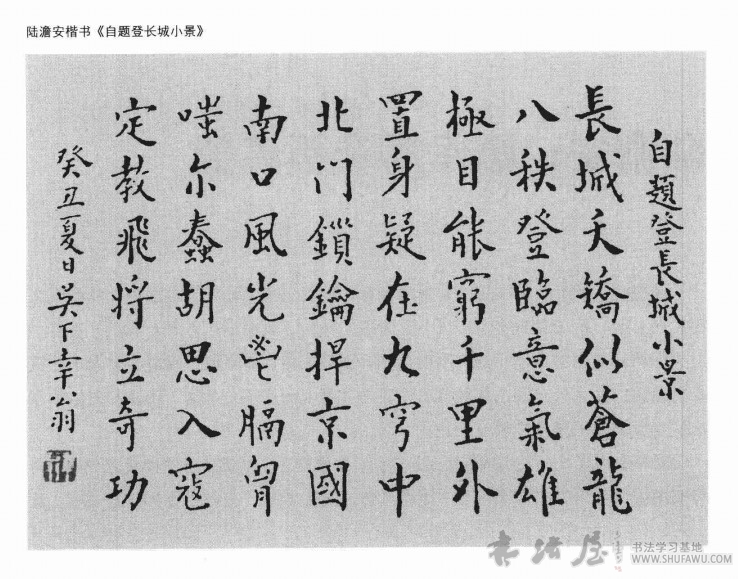 陆澹安楷书《自题登长城小景》
自題登長城小景
長城夭矯似蒼龍
八秩登臨意氣雄
極目能窮千里外
置身疑在九穹中
北门鎖鑰捍京國
南口風光鬯膈胷
嗤尔蠢胡思入寇
定教飛将立奇功
癸丑夏日吴下幸翁
书法屋
书法学习基地
WWW.SHUFAWU.COM